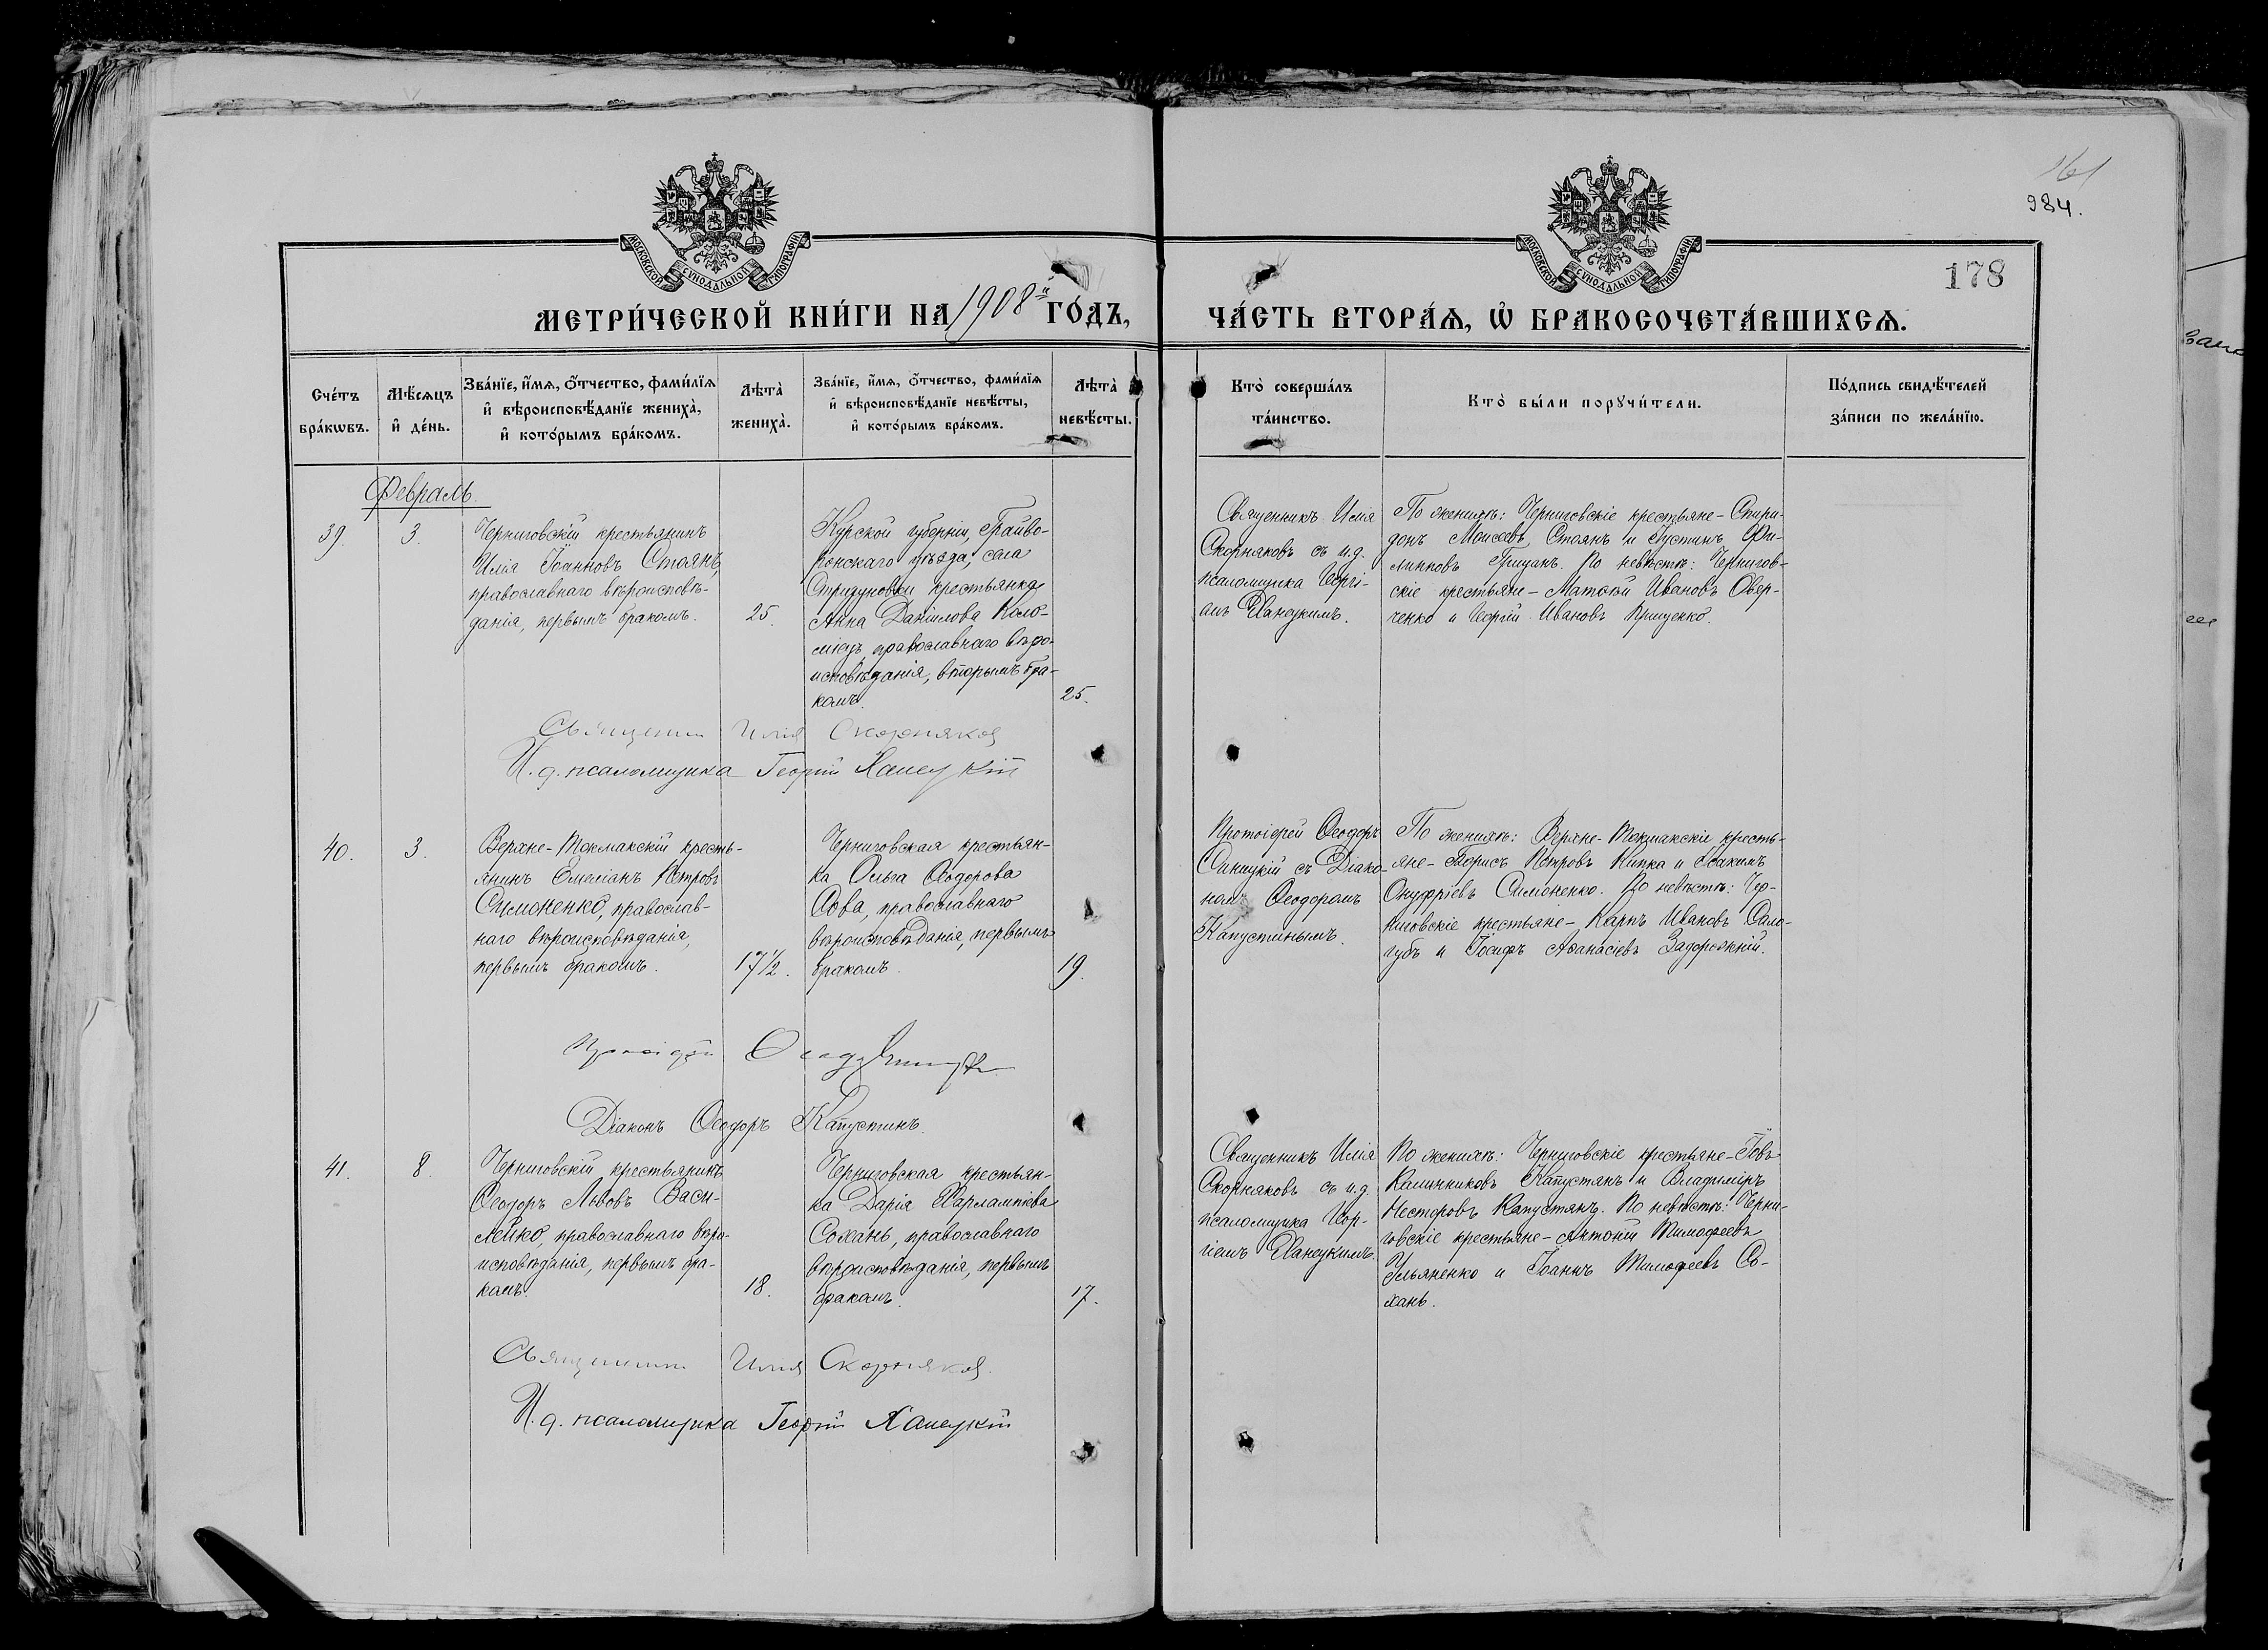 161
984.
178
МОСКОВСКОЙ СѴНОДАЛЬНОЙ ТИПОГРАФІИ
МОСКОВСКОЙ СѴНОДАЛЬНОЙ ТИПОГРАФІИ
МЕТРИ́ЧЕСКОЙ КНИ́ГИ НА 1908й ГО́ДЪ,
ЧА́СТЬ ВТОРА́Ѧ, Ѽ БРАКОСОЧЕТА́ВШИХСѦ.
Сче́тъ бра́кωвъ.
Мѣ́сѧцъ и҆ де́нь.
Зва́нїе, и҆́мѧ, ѻ҆́тчество, фами́лїѧ
и҆ вѣроисповѣ́данїе жениха̀,
и҆ кото́рымъ бра́комъ.
Лѣта̀ жениха̀.
Зва́нїе, и҆́мѧ, ѻ҆́тчество, фами́лїѧ
и҆ вѣроисповѣ́данїе невѣ́сты,
и҆ кото́рымъ бра́комъ.
Лѣта̀ невѣ́сты.
Кто̀ соверша́лъ
та́инство.
Кто̀ бы́ли порꙋчи́тели.
По́дпись свидѣ́телей
за́писи по жела́нїю.
Февраль.
39.
3.
Черниговскій крестьянинъ
Илія Іоанновъ Стоянъ,
православнаго вѣроисповѣ-
данія, первымъ бракомъ.
25.
Курской губерніи, Грайво-
ронскаго уѣзда, села
Стригуновки крестьянка
Анна Даніилова Коло-
міецъ, православнаго вѣро-
исповѣданія, вторымъ бра-
комъ.
25.
Священникъ Илія
Скорняковъ съ и.д.
псаломщика Георгі-
емъ Ханецкимъ.
По женихѣ: Черниговскіе крестьяне - Спири-
донъ Моисеевъ Стоянъ и Іустинъ Фи-
липповъ Грицанъ. По невѣстѣ: Чернигов-
скіе крестьяне - Матѳей Ивановъ Овер-
ченко и Георгій Ивановъ Прищенко.
Священникъ Илія Скорняковъ
И. д. псаломщика Георгій Ханецкій
40.
3.
Верхне-Токмакскій кресть-
янинъ Емеліанъ Петровъ
Симоненко, православ-
наго вѣроисповѣданія,
первымъ бракомъ.
17½.
Черниговская крестьян-
ка Ольга Ѳеодорова
Сова, православнаго
вѣроисповѣданія, первымъ
бракомъ.
19.
Протоіерей Ѳеодоръ
Синицкій съ Діако-
номъ Ѳеодоромъ
Капустинымъ.
По женихѣ: Верхне-Токмакскіе кресть-
яне - Борисъ Петровъ Кипка и Іоакимъ
Онуфріевъ Симоненко. По невѣстѣ: Чер-
ниговскіе крестьяне - Карпъ Ивановъ Соло-
губъ и Іосифъ Аѳанасіевъ Задорожній.
Протоіерей Ѳеодоръ Синицкій
Діаконъ Ѳеодоръ Капустинъ.
41.
8.
Черниговскій крестьянинъ
Ѳеодоръ Львовъ Васи-
ленко, православнаго вѣро-
исповѣданія, первымъ бра-
комъ.
18.
Черниговская крестьян-
ка Дарія Харлампіева
Сохань, православнаго
вѣроисповѣданія, первымъ
бракомъ.
17.
Священникъ Илія
Скорняковъ съ и.д.
псаломщика Геор-
гіемъ Ханецкимъ.
По женихѣ: Черниговскіе крестьяне - Іовъ
Каллиниковъ Капустянъ и Владиміръ
Несторовъ Капустянъ. По невѣстѣ: Черни-
говскіе крестьяне - Антоній Тимоѳеевъ
Ульяненко и Іоаннъ Тимоѳеевъ Со-
хань.
Священникъ Илія Скорняковъ.
И. д. псаломщика Георгій Ханецкій